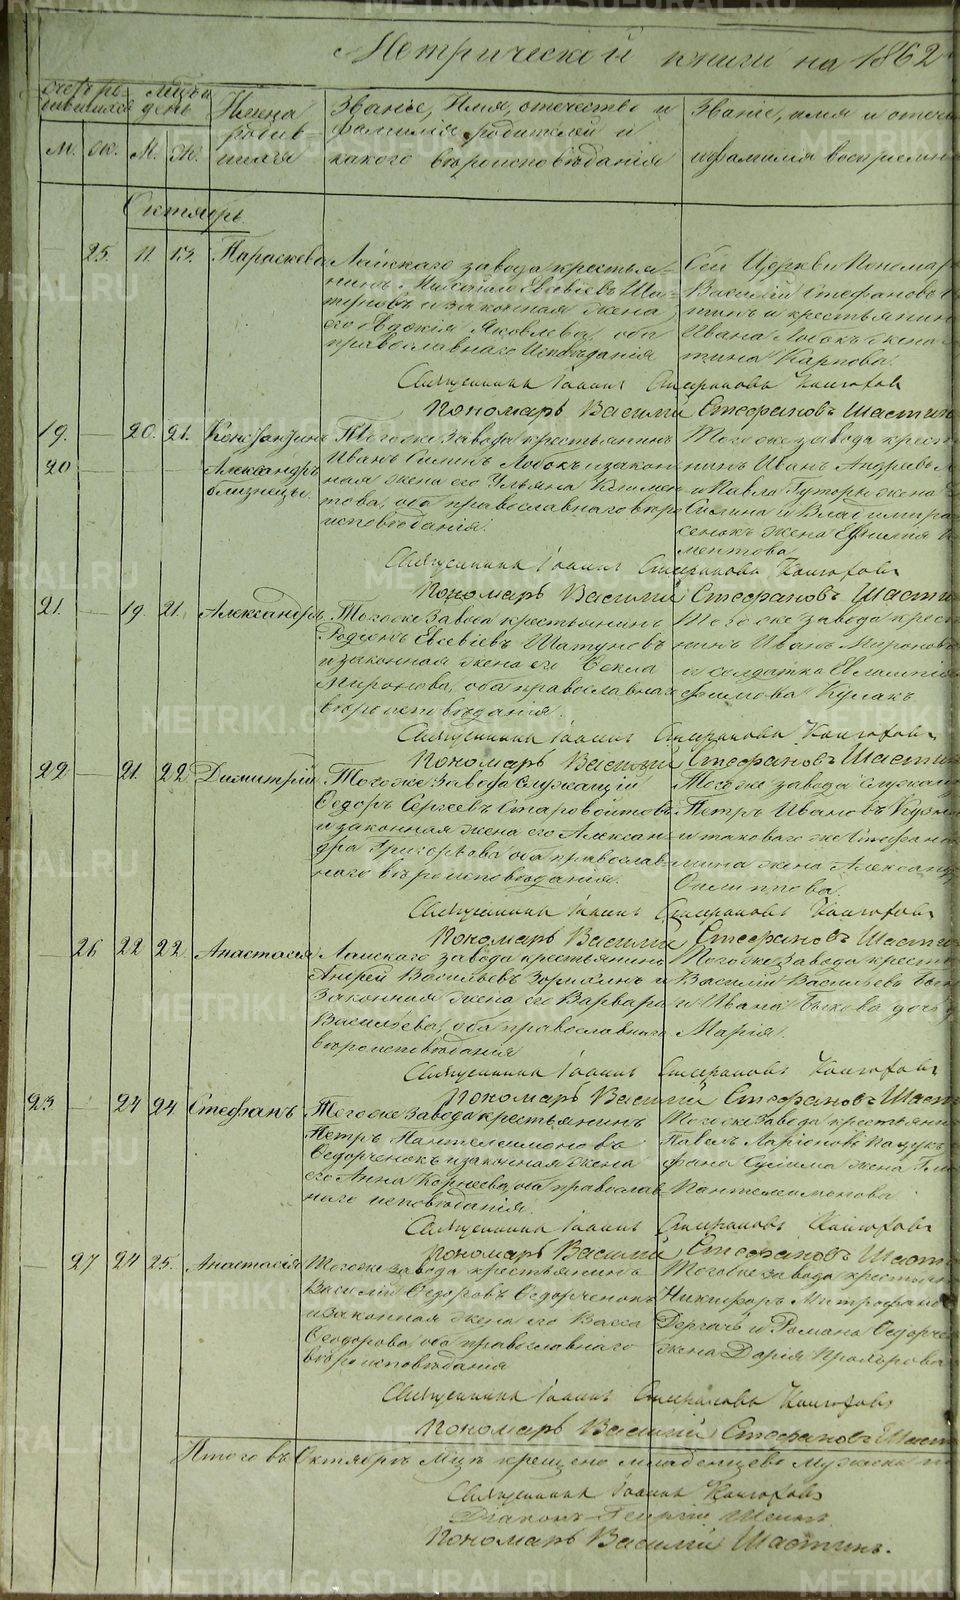 Метрической книги на 1862
Счетъ ро- Мцъ и
дившихся день
Имена
родив
шихся
Званіе, Имя, отечество и
фамилія родителей и
какого вѣроисповѣданія
Званіе, имя и отече
и фамилія воспріемни
м. ж. М. Ж.
Октябрь
25. 11. 13. Параскева
Лайскаго завода крестья-
нинъ Михаилъ Евсевіевъ Ша-
туновъ и законная жена
его Евдокія Яковлева, оба
православнаго Исповѣданія
Сей Церкви Пономар
Василій Стефановъ
тинъ и крестьянин
Ивана Лобокъ жена
тина Карпова.
Священникъ Іоаннъ Стефановъ
Пономарь Василій Стефановъ Шастин
19. 20. 21. Константинъ
20 Александръ
близнецы.
Тогоже завода крестьянинъ
Иванъ Силинъ Лобокъ и закон
ная жена его Ульяна Климен
това, оба православнаго вѣро
исповѣданія.
Тогоже завода крест
нинъ Иванъ Андреев
и Павла Буторы жена
и Владимира
сенокъ жена Евфимія
ментова
Священникъ Іоаннъ Стефановъ
Пономарь Василій Стефановъ Шасти
21. 19. 21. Александръ
Тогоже завода крестьянинъ
Родіонъ Евсевіевъ Шатуновъ
и законная жена его Текла
Миронова, оба православнаго
вѣроисповѣданія.
Тогоже завода крест
нинъ Иванъ Миронов
и солдатка Евлампія
фимова Кулакъ
Священникъ Іоаннъ Стефановъ
Пономарь Василій Стефановъ Шастин
22 21. 22 Димитрій
Тогоже завода Служащій
Федоръ Сергеевъ Старовойтовъ
и законная жена его Алексан
дра Григорьева, оба православ
наго вѣроисповѣданія.
Тогоже завода служащ
Петръ Ивановъ Кузн
и таковаго же Стефана
мина жена Александр
Филиппова.
Священникъ Іоаннъ Стефановъ
Пономарь Василій Стефановъ Шасти
26 22 22 Анастасія
Лайскаго завода крестьянинъ
Андрей Васильевъ и
законная жена его Варвара
Васильева, оба православнаго
вѣроисповѣданія
Тогоже завода крестья
Василій Васильевъ Бы
и Ивана Быкова дочь
Марія.
Священникъ Іоаннъ Стефановъ
Пономарь Василій Стефановъ Шаст
23 24 24 Стефанъ
Тогоже завода крестьянинъ
Петръ Пантелеимоновъ
Федорченокъ и законная жена
его Анна Корнеева, оба православ
наго исповѣданія.
Тогоже завода крестьянин
Павелъ Ларіоновъ
фана Сулима жена
Пантелеимонова
Священникъ Іоаннъ Стефановъ
Пономарь Василій Стефановъ Шаст
27 24 25. Анастасія
Тогоже завода крестьянинъ
Василій Федоровъ Федорченокъ
и законная жена его Васса
Феодорова, оба православнаго
вѣроисповѣданія
Тогоже завода крестьян
Никифоръ Митрофанов
Дергачъ и Романа Федорче
жена Дарія Прохорова
Священникъ Іоаннъ Стефановъ
Пономарь Василій Стефановъ Шаст
Итого въ Октябрѣ Мцѣ крещено младенцевъ мужеска
Священникъ Іоаннъ
Діаконъ Георгій
Пономарь Василій Шастинъ.
METRIKI.GASO-URAL.RU